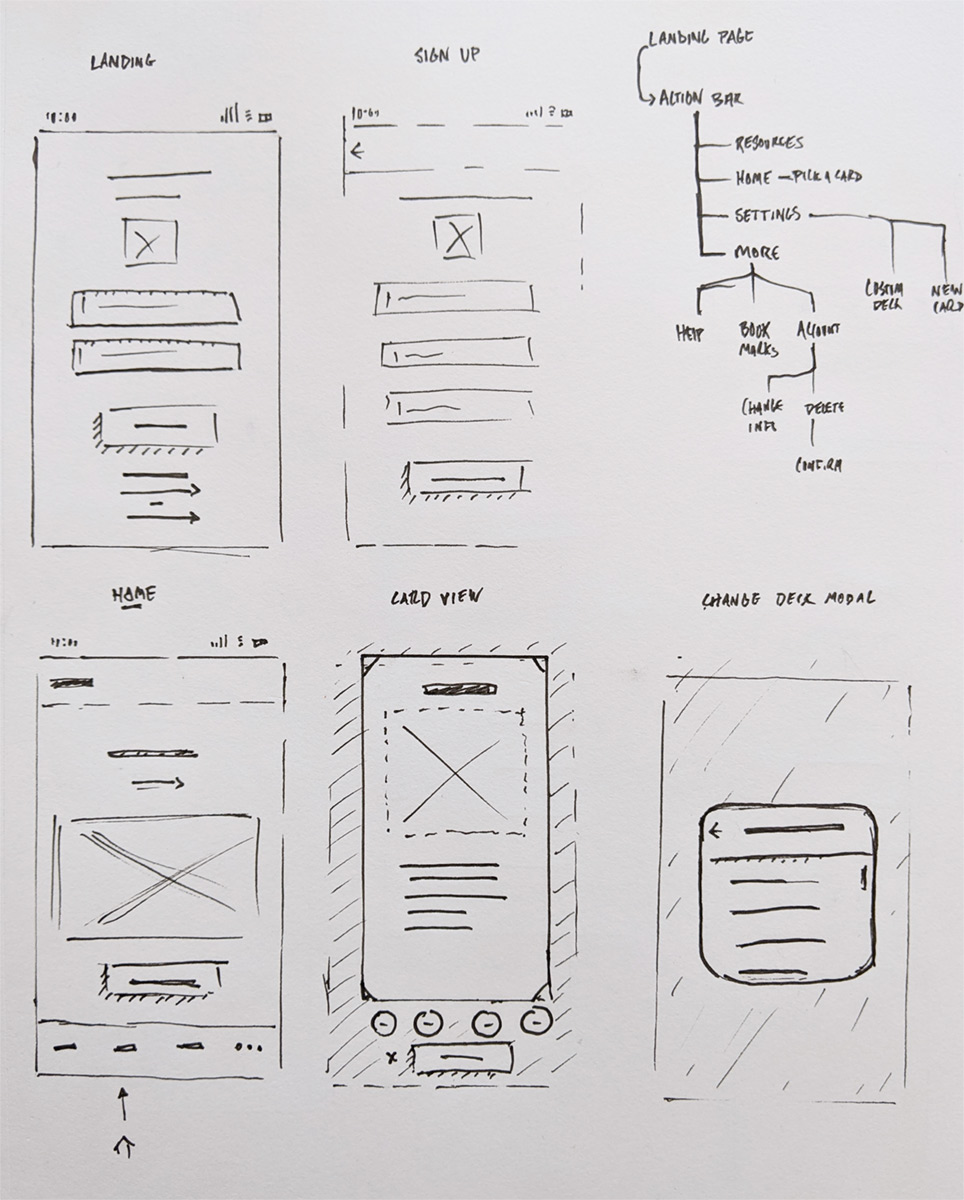 LANDING
SIGN UP
LANDING PAGE
ACTION BAR
RESOURCES
HOME — PICK A CARD
SETTINGS
MORE
CUSTOM
DECK
NEW
CARD
HELP
BOOK
MARKS
ACCOUNT
CHANGE
INFO
DELETE
CONFIRM
HOME
CARD VIEW
CHANGE DECK MODAL